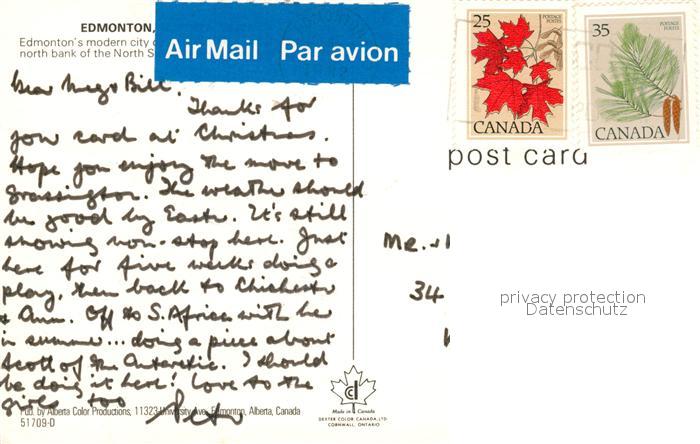 EDMONTON,
Edmonton's modern city
north bank of the North S
Air Mail Par avion
25
POSTAGE
POSTES
CANADA
35
POSTAGE
POSTES
CANADA
post card
Dear Megs Bill.
Thanks for
your card at Christmas.
Hope you enjoy the move to
Grassington. The weather should
be good by Easter. It's still
snowing non-stop here. Just
here for five weeks doing a
play, then back to Chichester
& Ann. Off to S. Africa with her
in summer... doing a piece about
Scott of the Antarctic. I should
be doing it here! Love to the
girls too Peter
Mr.
34
privacy protection
Datenschutz
Pub. by Alberta Color Productions, 11323 University Ave. Edmonton, Alberta, Canada
51709-D
Made in Canada
DEXTER COLOR CANADA, LTD
CORNWALL, ONTARIO